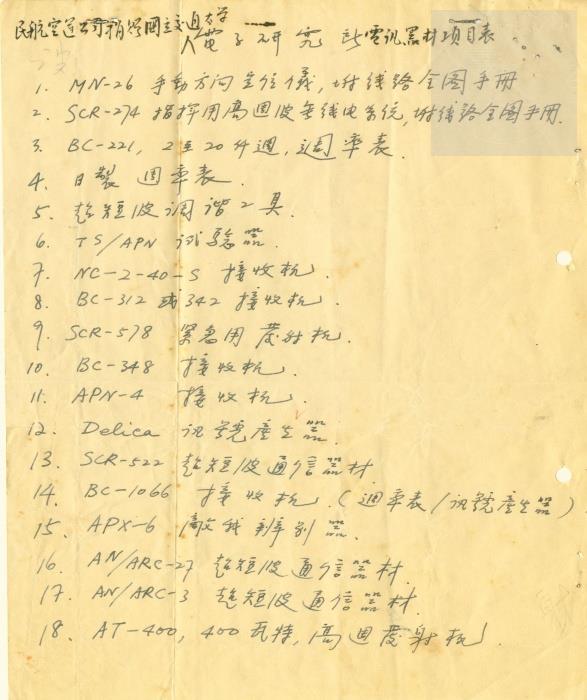 民航空運公司捐贈國立交通大學
電子研究所電訊器材項目表
1. MN-26 手動方向定位儀，附线路全图手册
2. SCR-274 指揮用高週波无线电系统，附线路全图手册.
3. BC-221, 2至20千週，週率表.
4. 日製 週率表.
5. 超短波调谐工具.
6. TS/APN 试验器.
7. NC-2-40-S 接收机.
8. BC-312 或342 接收机.
9. SCR-578 緊急用 發射机.
10. BC-348 接收机.
11. APN-4 接收机.
12. Delica 讯號產生器.
13. SCR-522 超短波通信器材.
14. BC-1066 接收机.(週率表/讯號產生器)
15. APX-6 敵我辨别器.
16. AN/ARC-27 超短波通信器材.
17. AN/ARC-3 超短波通信器材.
18. AT-400, 400瓦特, 高週發射机.